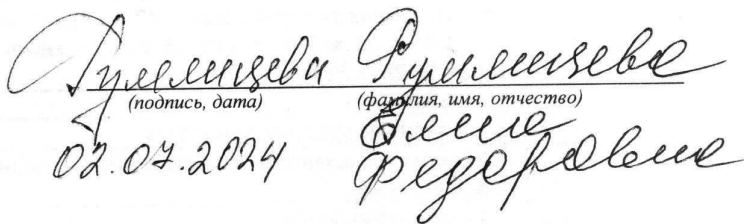 Румянцева Румянцева
(подпись, дата) (фамилия, имя, отчество)
Елена
02.07.2024 Федоровна